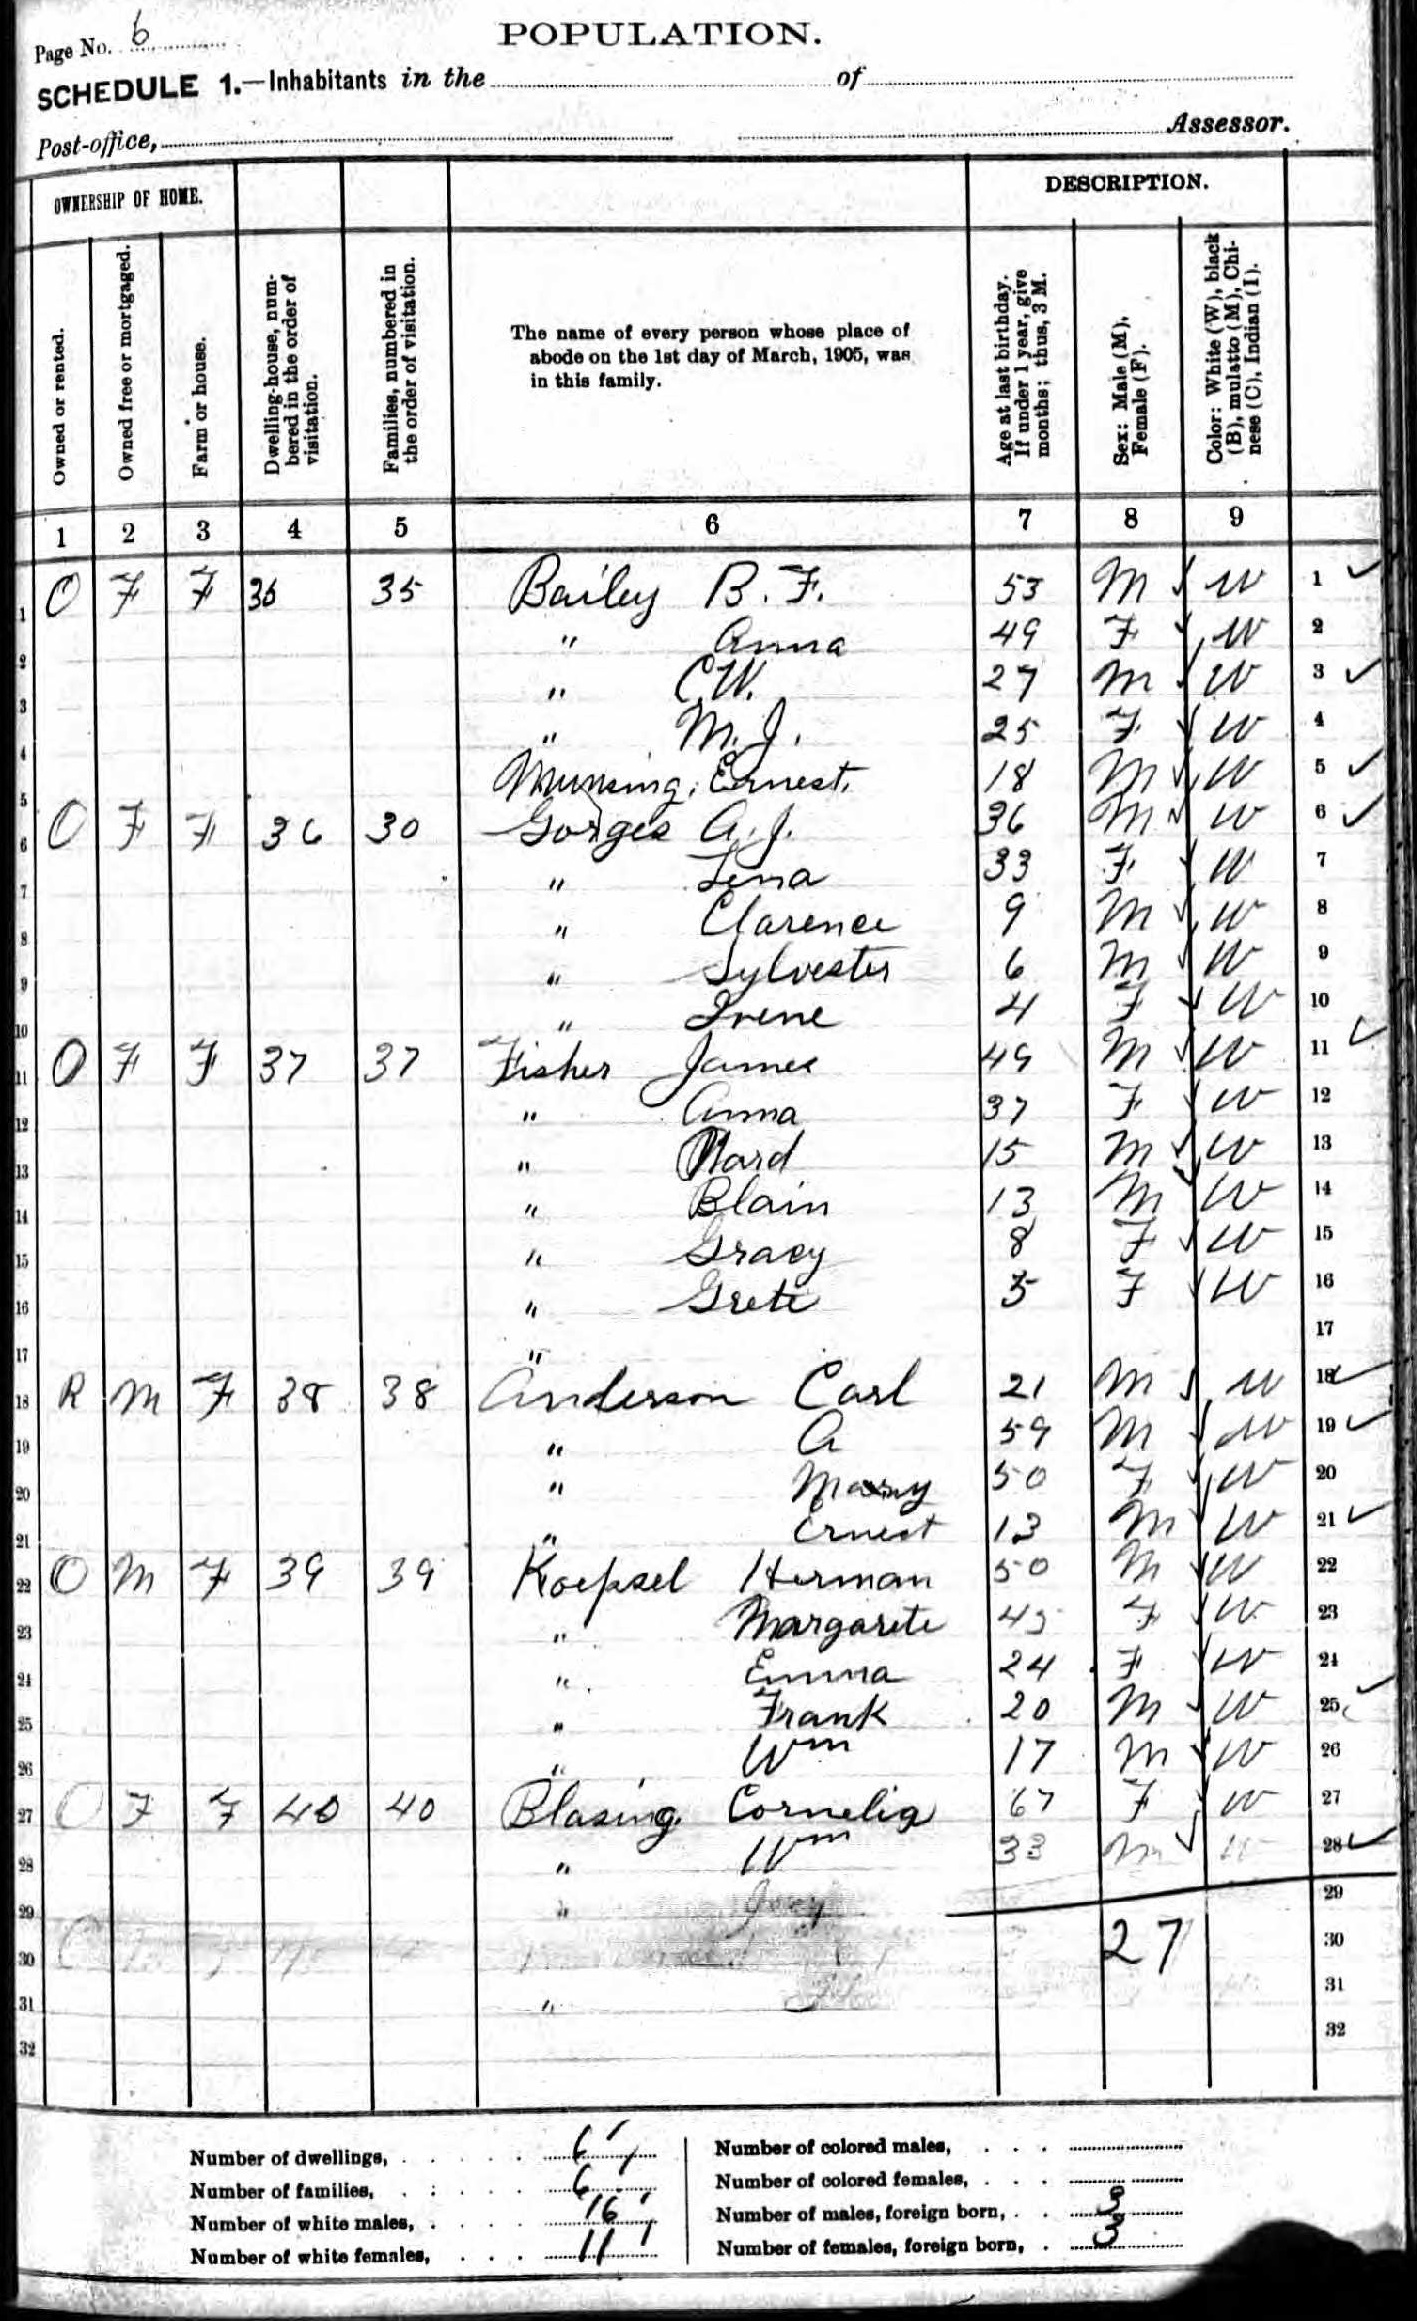 Page No. 6
POPULATION.
SCHEDULE 1.—Inhabitants in the of
Post-office, Assessor.
OWNERSHIP OF HOME. DESCRIPTION.
Owned or rented.
Owned free or mortgaged.
Farm or house.
Dwelling-house, num-
bered in the order of
visitation.
Families, numbered in
the order of visitation.
The name of every person whose place of
abode on the 1st day of March, 1905, was
in this family.
Age at last birthday.
If under 1 year, give
months; thus, 3 M.
Sex: Male (M),
Female (F).
Color: White (W), black
(B), mulatto (M), Chi-
nese (C), Indian (I).
1 2 3 4 5 6 7 8 9
1 O F F 35 35 Bailey B. F. 53 M W 1
2 " Anna 49 F W 2
3 " C.W. 27 M W 3
4 " M. J. 25 F W 4
5 Munsing, Ernest. 18 M W 5
6 O F F 36 30 Gorges A. J. 36 M W 6
7 " Lena 33 F W 7
8 " Clarence 9 M W 8
9 " Sylvester 6 M W 9
10 " Irene 4 F W 10
11 O F F 37 37 Fisher James 49 M W 11
12 " Anna 37 F W 12
13 " Ward 15 M W 13
14 " Blain 13 M W 14
15 " Gracy 8 F W 15
16 " Grete 5 F W 16
17 " 17
18 R M F 38 38 Anderson Carl 21 M W 18
19 " A 59 M W 19
20 " Mary 50 F W 20
21 " Ernest 13 M W 21
22 O M F 39 39 Koepsel Herman 50 M W 22
23 " Margarete 45 F W 23
24 " Emma 24 F W 24
25 " Frank 20 M W 25
26 " Wm 17 M W 26
27 O F F 40 40 Blasing Cornelia 67 F W 27
28 " Wm 33 M W 28
29 " 29
30 27 30
31 " 31
32 32
Number of dwellings, 6
Number of families, 6
Number of white males, 16
Number of white females, 11
Number of colored males,
Number of colored females,
Number of males, foreign born, 3
Number of females, foreign born, 3